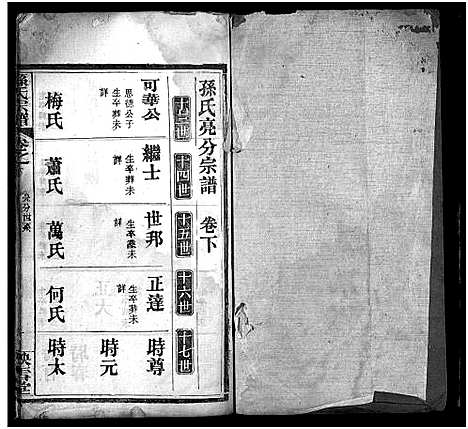 孫氏亮分宗譜 卷下
十三世
十四世
十五世
十六世
十七世
可華公
恩德公子
生卒葬未
詳
繼士
生卒葬未
詳
世邦
生卒葬未
詳
正達
生卒葬未
詳
時尊
時元
梅氏
蕭氏
萬氏
何氏
時太